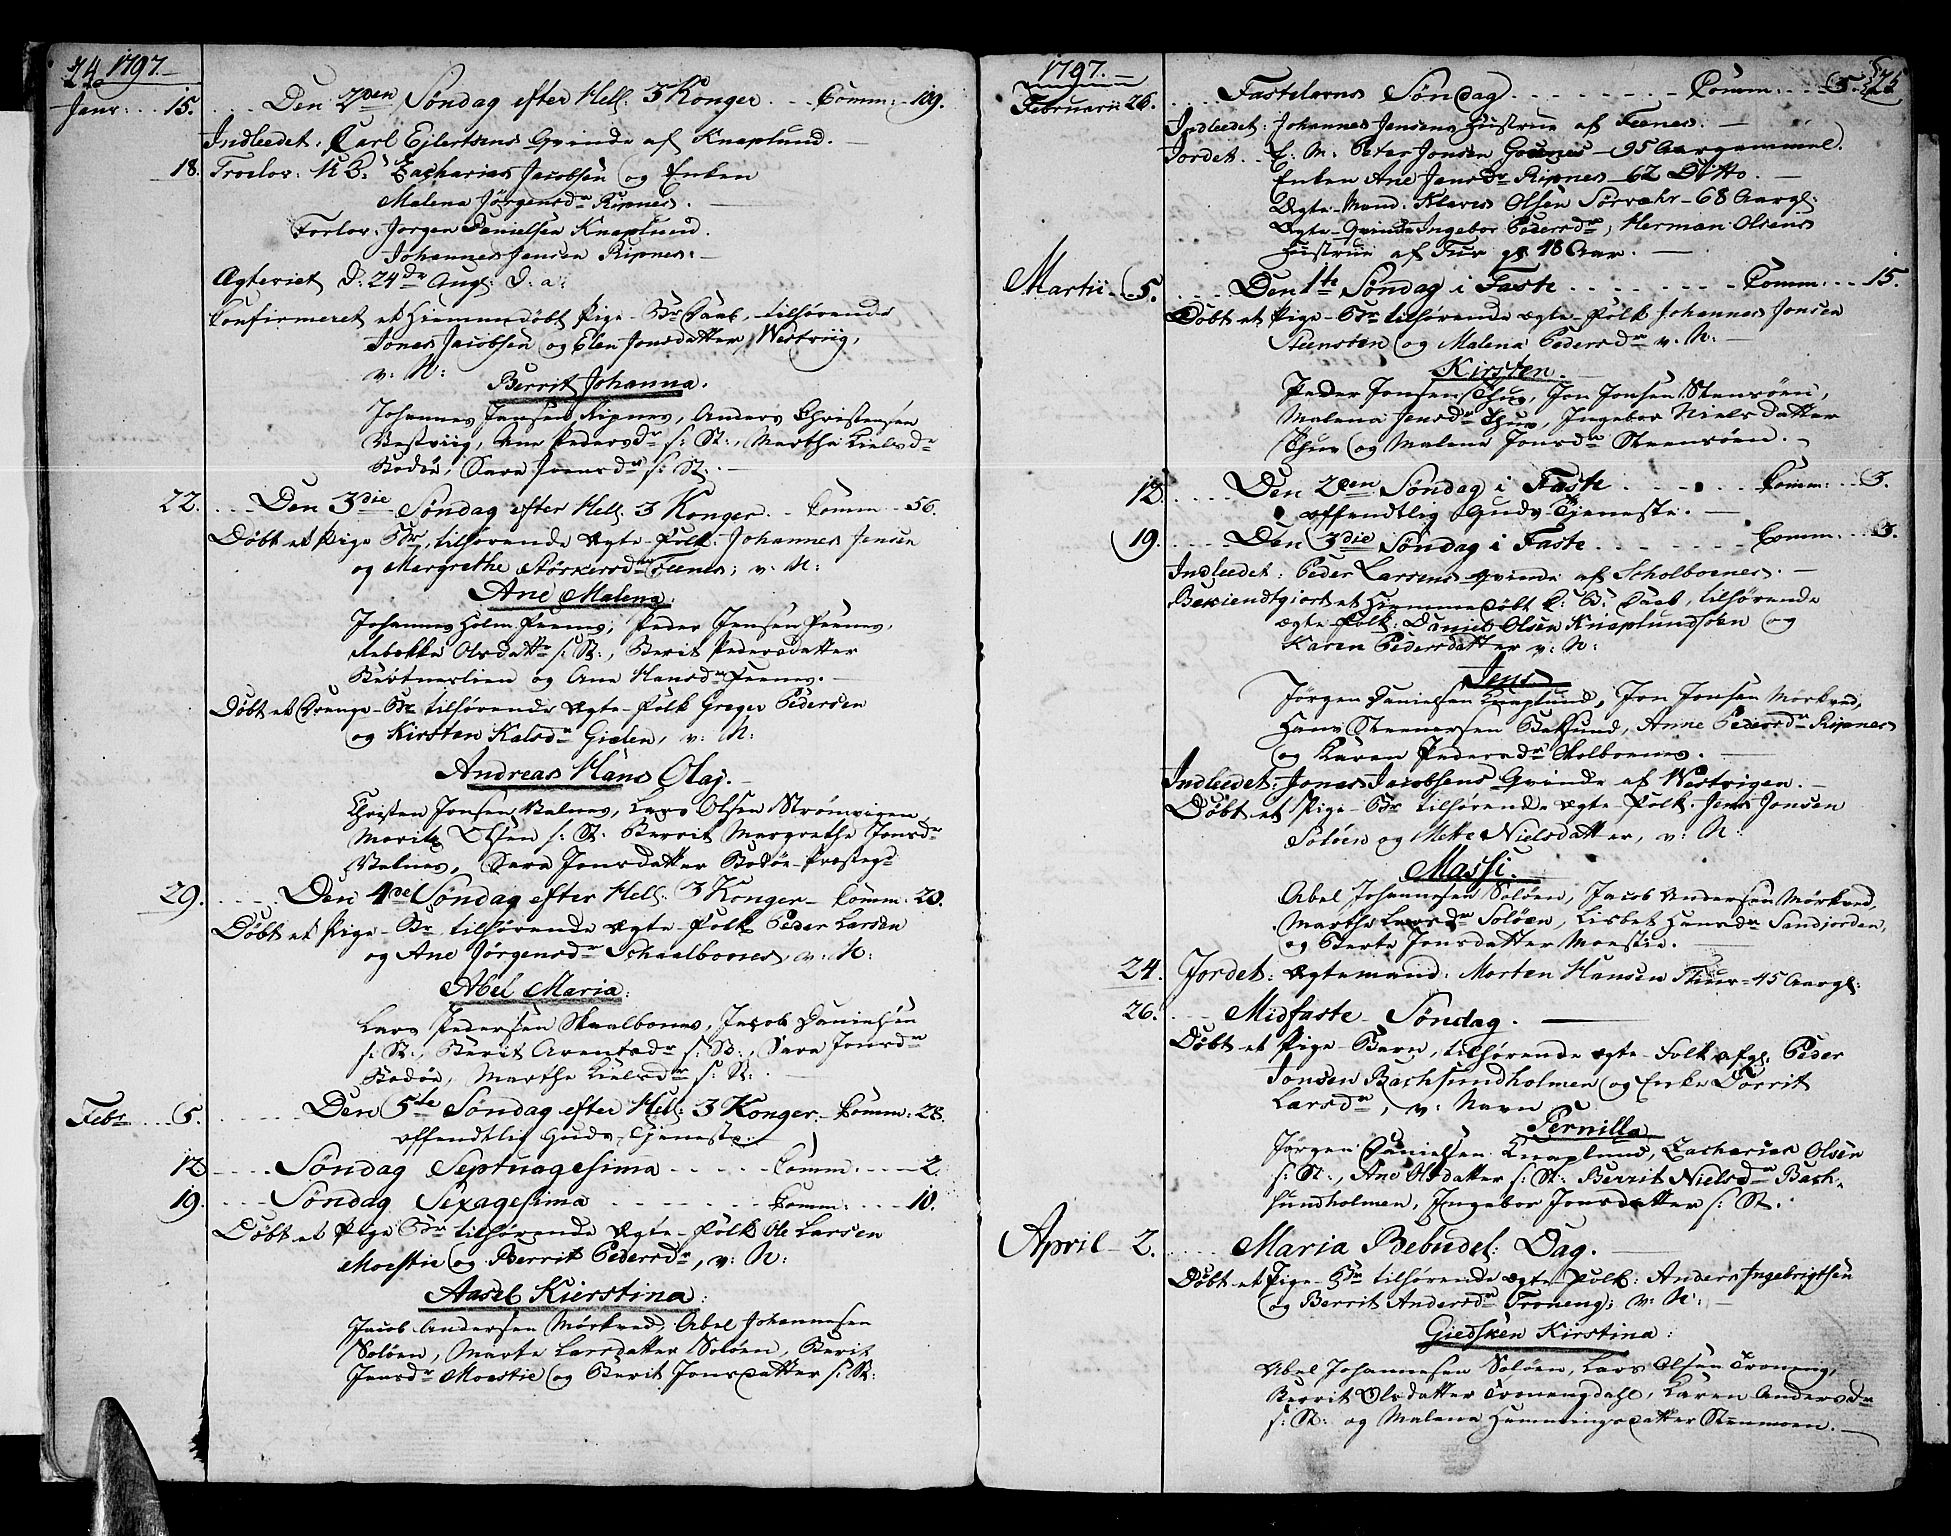 74 1797.
Janr: 15. Den 2den Søndag efter Hell. 3 Konger. Comm: 109.
Indleedet: Carl Ejlertsens Qvinde af Knaplund.
18. Troelov: N. B: Zacharias Jacobsen og Enken
Malena Jørgensdr Ripnes.
Forlov: Jørgen Danielsen Knaplund.
Johannes Jensen Ripnes.
Ægteviet d: 24de Aug: d. a:
Confirmeret et Hiemmedøbt Pige-Br Daab, tilhørende
Jonas Jacobsen og Elen Jonsdatter Westviig,
v: N:
Berrit Johanna.
Johannes Jensen Ripnes, Anders Christensen
Vestviig, Ane Pedersdr s: St:, Marthe Nielsdr
Bodøe, Sara Joensdr s: St:
22. Den 3die Søndag efter Hell. 3 Konger. Comm 56.
Døbt et Pige Br, tilhørende Ægte-Folk: Johannes Jensen
og Margrethe Størkersdr Feenes; v: N:
Ane Malena.
Johannes Holm Feenes, Peder Jensen Feenes,
Rebekka Olsdatr s: St:, Berit Pedersdatter
og Ane Hansdr Feenes.
Døbt et Drenge-Br tilhørende Ægte-Folk Greger Pedersen
og Kirsten Kalsdr Gielen, v: N:
Andreas Hans Olaj.
Christen Jensen Valnes, Lars Olsen Strømviigen,
Moritz Olsen s: St: Berrit Margrethe Jonsdr
Valnes, Sara Jonsdatter Bodøe-Præsteg:
29. Den 4de Søndag efter Hell: 3 Konger Comm: 20.
Døbt et Pige-Br tilhørende Ægte-Folk Peder Larsen
og Ane Jørgensdr Schaalbones, v: N:
Abel Maria.
Lars Pedersen Skaalbones, Jacob Danielsen
s: St:, Berit Arentsdr s: St:, Sara Jonsdr
Bodøe, Marthe Nielsdr s: St:
Febr 5. Den 5te Søndag efter Hell: 3 Konger. Comm: 28.
offendtlig Guds-Tjeneste.
12. Søndag Septuagesima Comm: 2.
19. Søndag Sexagesima Comm: 10.
Døbt et Pige Br tilhørende Ægte-Folk Ole Larsen
Moestie og Berrit Pedersdr, v: N:
Aasel Kierstina:
Jacob Andersen Mørkved, Abel Johannesen
Soløen, Marte Larsdatter Soløen, Berit
Jensdr Moestie og Berit Jonsdatter s: St:
1797. 75
Februarii 26. Fastelavns Søndag Comm: 5.
Indleedet: Johannes Jensens Hustrue af Feenes.
Jordet: E. M. Peter Jonsen Godnes 95 Aar gammel.
Enken Ane Jensdr Ripnes 62 Ditto.
Ægte-Mand: Klaves Olsen Sørvær 68 Aar gl:
Ægte-Qvinde Ingebor Pedersdr, Herman Olsens
Hustrue af Tuv gl 48 Aar.
Martii 5. Den 1te Søndag i Faste Comm: 15.
Døbt et Pige-Br tilhørende Ægte-Folk Johannes Jonsen
Steensøen og Malena Pedersdr v. N:
Kirsten.
Peder Jonsen Thuv, Jon Jonsen Stensøen,
Malena Jensdr Thuv, Ingebor Nielsdatter
Thuv og Malena Jonsdr Steensøen.
12. Den 2den Søndag i Faste Comm: 3.
offendtlig Guds Tjeneste.
19. Den 3die Søndag i Faste Comm: 3.
Indleedet: Peder Larsens Qvinde af Scholbones.
Bekiendtgiort et Hiemmedøbt D: B: Daab, tilhørende
Ægte-Folk: Daniel Olsen Knaplundsøen og
Karen Pedersdatter v: N:
Jens
Jørgen Danielsen Knaplund, Jon Jonsen Mørkved,
Hans Steenersen Baksund, Anne Pedersdr Ripnes
og Karen Pedersdr Skolboenes.
Indleedet: Jonas Jacobsens Qvinde af Westvigen.
Døbt et Pige-Br tilhørende Ægte-Folk Jens Jonsen
Soløen og Mette Nielsdatter, v: N:
Massi.
Abel Johannesen Soløen, Jacob Andersen Mørkved,
Marthe Larsdr Soløen, Lisbet Hansdr Sandjorden,
og Berte Jonsdatter Moestie.
24. Jordet: Ægtemand: Morten Hansen Thuv 45 Aar gl:
26. Midfaste Søndag.
Døbt et Pige-Barn, tilhørende Ægte-Folk afg: Peder
Jonsen Bachsundholmen og Enke Dorrit
Larsdr, v: Navn
Pernilla
Jørgen Danielsen Knaplund, Zacharias Olsen
s: St:, Ane Olsdatter s: St: Berrit Nielsdr Bach-
sundholmen, Ingebor Jonsdatter s: St:
April 2. Maria Bebudel: Dag.
Døbt et Pige-Br tilhørende Ægte-Folk: Anders Ingebrigtsen
og Berrit Andersdr Troneng; v: N:
Giedsken Kirstina:
Abel Johannesen Soløen, Lars Olsen Troneng,
Berrit Olsdatter Tronengdahl, Karen Andersdr
s: St: og Malena Hemmingsdatter Stenmoen.